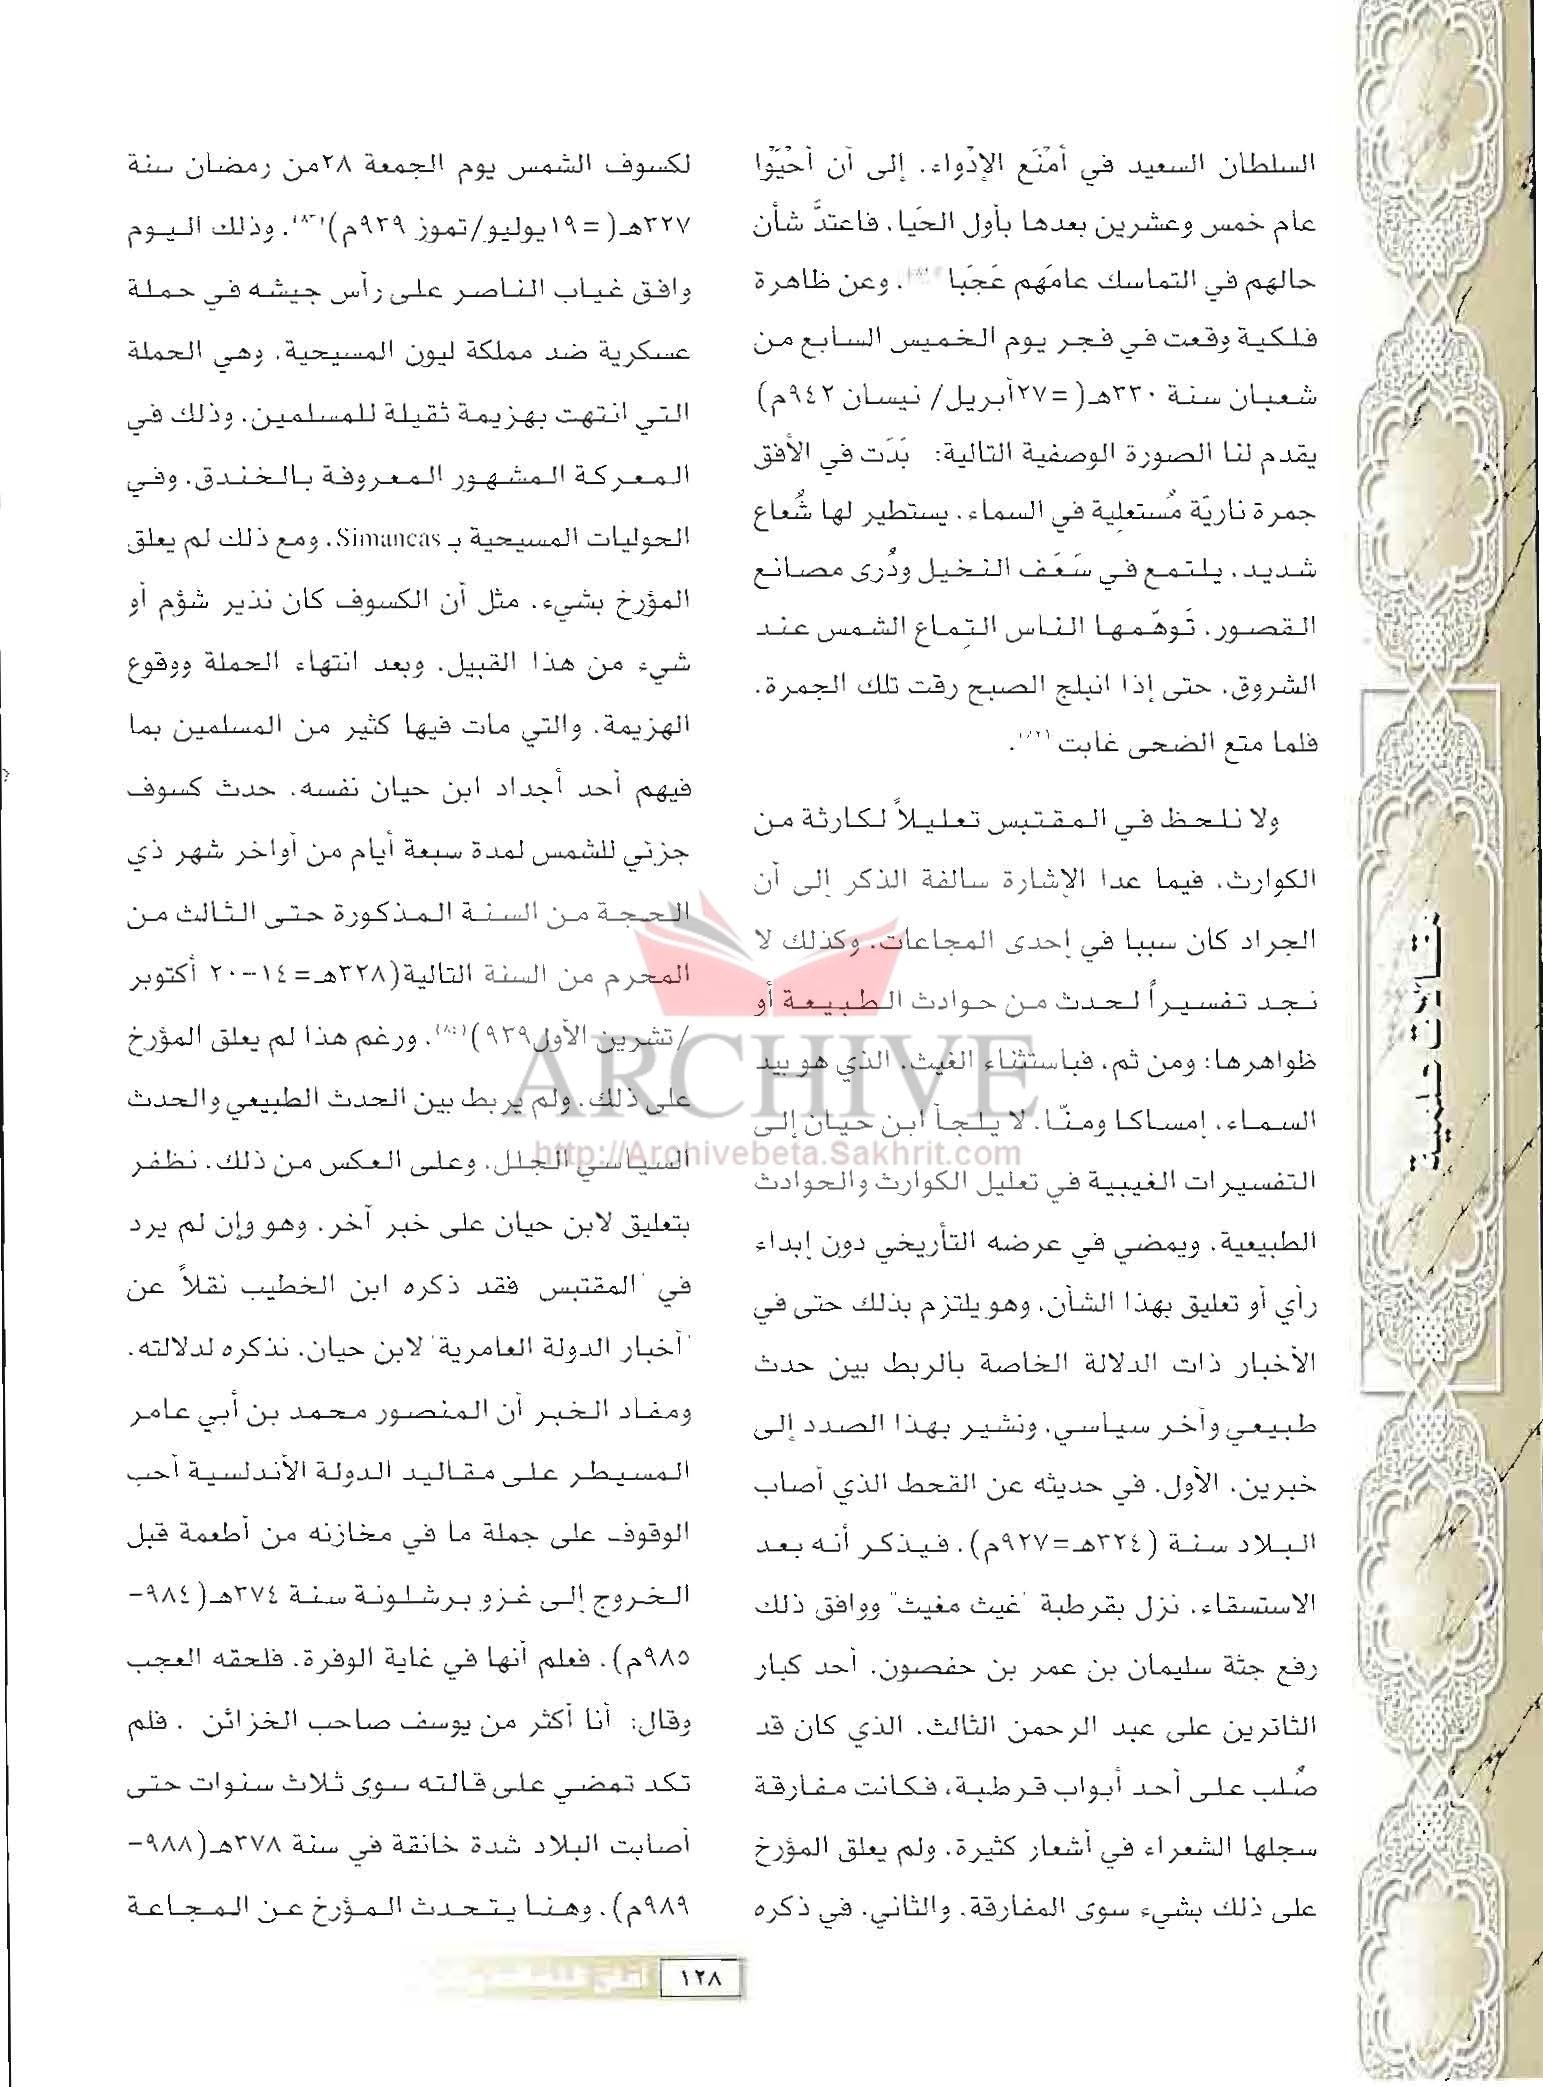 السلطان السعيد في أمْنَع الإدْواء. إلى أن أحْيَوْا
عام خمس وعشرين بعدها بأول الحَيا. فاعتدَّ شأن
حالهم في التماسك عامَهم عَجَبا. وعن ظاهرة
فلكية وقعت في فجر يوم الخميس السابع من
شعبان سنة ٣٣٠هـ( =٢٧أبريل/ نيسان ٩٤٢م)
يقدم لنا الصورة الوصفية التالية: بَدَت في الأفق
جمرة ناريّة مُستعلِية في السماء. يستطير لها شُعاع
شديد. يلتمع في سَعَف النخيل وذُرى مصانع
القصور. تَوهّمها الناس التِماع الشمس عند
الشروق. حتى إذا انبلج الصبح رقت تلك الجمرة.
فلما متع الضحى غابت (٨٢).
ولا نلحظ في المقتبس تعليلاً لكارثة من
الكوارث. فيما عدا الإشارة سالفة الذكر إلى أن
الجراد كان سببا في إحدى المجاعات. وكذلك لا
نجد تفسيراً لحدث من حوادث الطبيعة أو
ظواهرها: ومن ثم، فباستثناء الغيث. الذي هو بيد
السماء. إمساكا ومنّا. لا يلجأ ابن حيان إلى
التفسيرات الغيبية في تعليل الكوارث والحوادث
الطبيعية. ويمضي في عرضه التأريخي دون إبداء
رأي أو تعليق بهذا الشأن. وهو يلتزم بذلك حتى في
الأخبار ذات الدلالة الخاصة بالربط بين حدث
طبيعي وآخر سياسي. ونشير بهذا الصدد إلى
خبرين. الأول. في حديثه عن القحط الذي أصاب
البلاد سنة (٣٢٤هـ=٩٢٧م). فيذكر أنه بعد
الاستسقاء. نزل بقرطبة "غيث مغيث" ووافق ذلك
رفع جثة سليمان بن عمر بن حفصون. أحد كبار
الثائرين على عبد الرحمن الثالث. الذي كان قد
صُلب على أحد أبواب قرطبة، فكانت مفارقة
سجلها الشعراء في أشعار كثيرة. ولم يعلق المؤرخ
على ذلك بشيء سوى المفارقة. والثاني. في ذكره
لكسوف الشمس يوم الجمعة ٢٨من رمضان سنة
٣٢٧هـ( =١٩يوليو/تموز ٩٣٩م)(٨٣). وذلك اليوم
وافق غياب الناصر على رأس جيشه في حملة
عسكرية ضد مملكة ليون المسيحية. وهي الحملة
التي انتهت بهزيمة ثقيلة للمسلمين. وذلك في
المعركة المشهور المعروفة بالخندق. وفي
الحوليات المسيحية بـ Simancas. ومع ذلك لم يعلق
المؤرخ بشيء. مثل أن الكسوف كان نذير شؤم أو
شيء من هذا القبيل. وبعد انتهاء الحملة ووقوع
الهزيمة. والتي مات فيها كثير من المسلمين بما
فيهم أحد أجداد ابن حيان نفسه. حدث كسوف
جزئي للشمس لمدة سبعة أيام من أواخر شهر ذي
الحجة من السنة المذكورة حتى الثالث من
المحرم من السنة التالية(٣٢٨هـ=١٤-٢٠ أكتوبر
/تشرين الأول٩٣٩)(٨٤). ورغم هذا لم يعلق المؤرخ
على ذلك. ولم يربط بين الحدث الطبيعي والحدث
السياسي الجلل. وعلى العكس من ذلك. نظفر
بتعليق لابن حيان على خبر آخر. وهو وإن لم يرد
في "المقتبس فقد ذكره ابن الخطيب نقلاً عن
"أخبار الدولة العامرية" لابن حيان. نذكره لدلالته.
ومفاد الخبر أن المنصور محمد بن أبي عامر
المسيطر على مقاليد الدولة الأندلسية أحب
الوقوف على جملة ما في مخازنه من أطعمة قبل
الخروج إلى غزو برشلونة سنة ٣٧٤هـ(٩٨٤-
٩٨٥م). فعلم أنها في غاية الوفرة. فلحقه العجب
وقال: أنا أكثر من يوسف صاحب الخزائن . فلم
تكد تمضي على قالته سوى ثلاث سنوات حتى
أصابت البلاد شدة خانقة في سنة ٣٧٨هـ(٩٨٨-
٩٨٩م). وهنا يتحدث المؤرخ عن المجاعة
ARCHIVE
http://Archivebeta.Sakhrit.com
١٢٨